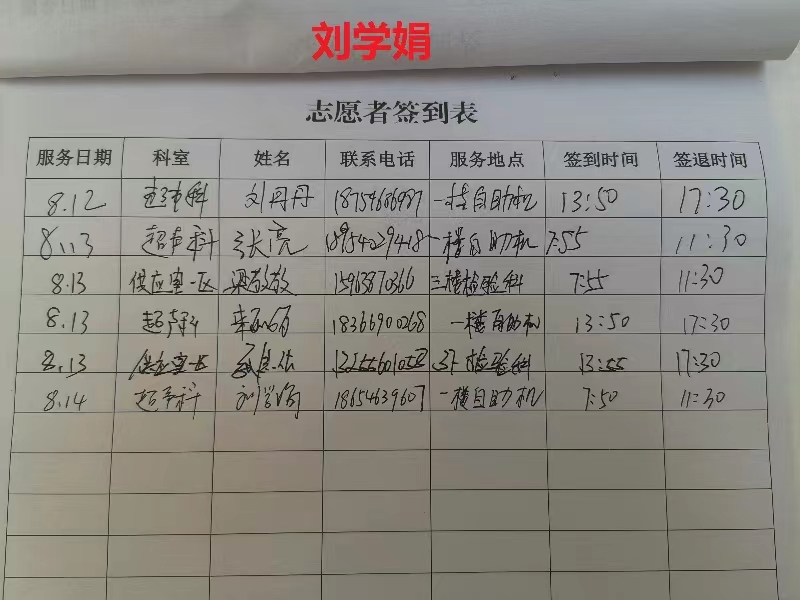 刘学娟
志愿者签到表
服务日期 科室 姓名 联系电话 服务地点 签到时间 签退时间
8.12 刘丹丹 一楼自助机 13:50 17:30
8.13 超声科 张亮 一楼自助机 7:55 11:30
8.13 供应室一区 梁敬敬 15963870366 三楼检验科 7:55 11:30
8.13 超声科 18366900268 一楼自助机 13:50 17:30
8.13 供应室一区 检验科 13:55 17:30
8.14 超声科 刘学娟 18654639607 一楼自助机 7:50 11:30